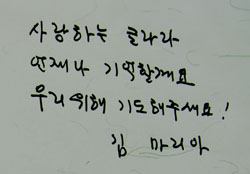 사랑하는 클라라
언제나 기억할께요
우리위해 기도해주세요!
김 마리아